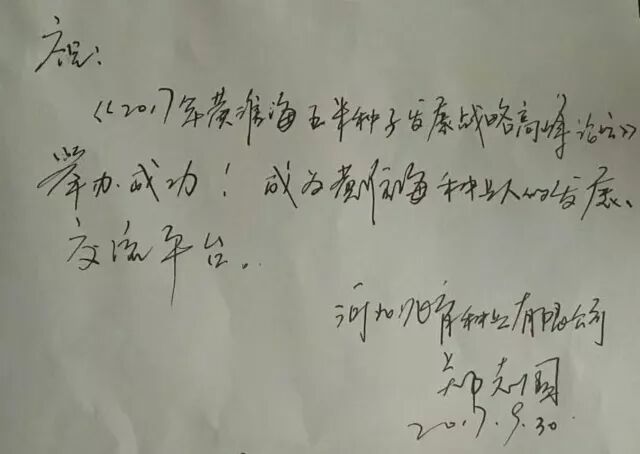 祝：
《2017年黄淮海玉米种子发展战略高峰论坛》
举办成功！成为黄淮海种业人的发展、
交流平台。
河北兆育种业有限公司
郑志国
2017.9.30